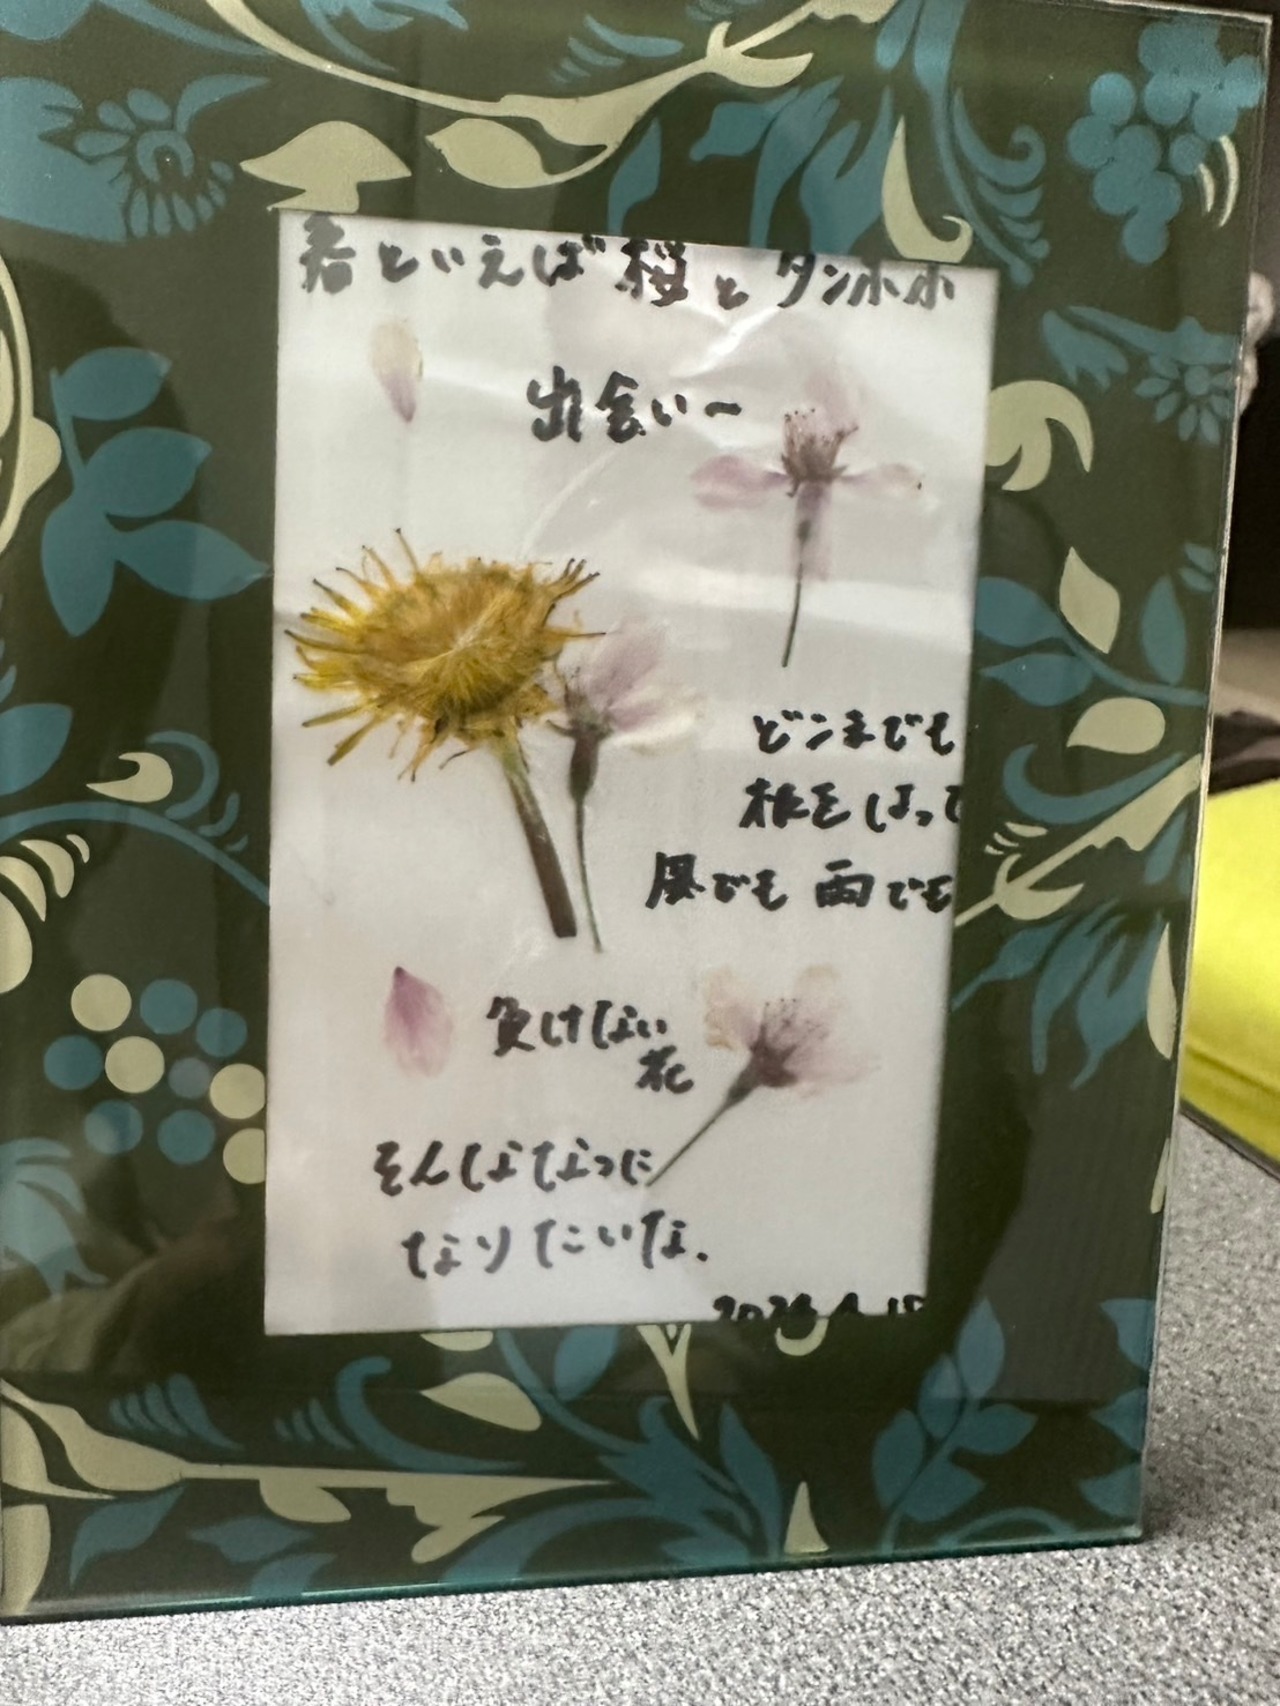 春といえば桜とタンポポ
出会いー
どこまでも
根をはって
風でも 雨でも
負けない
花
そんなはなに
なりたいな.